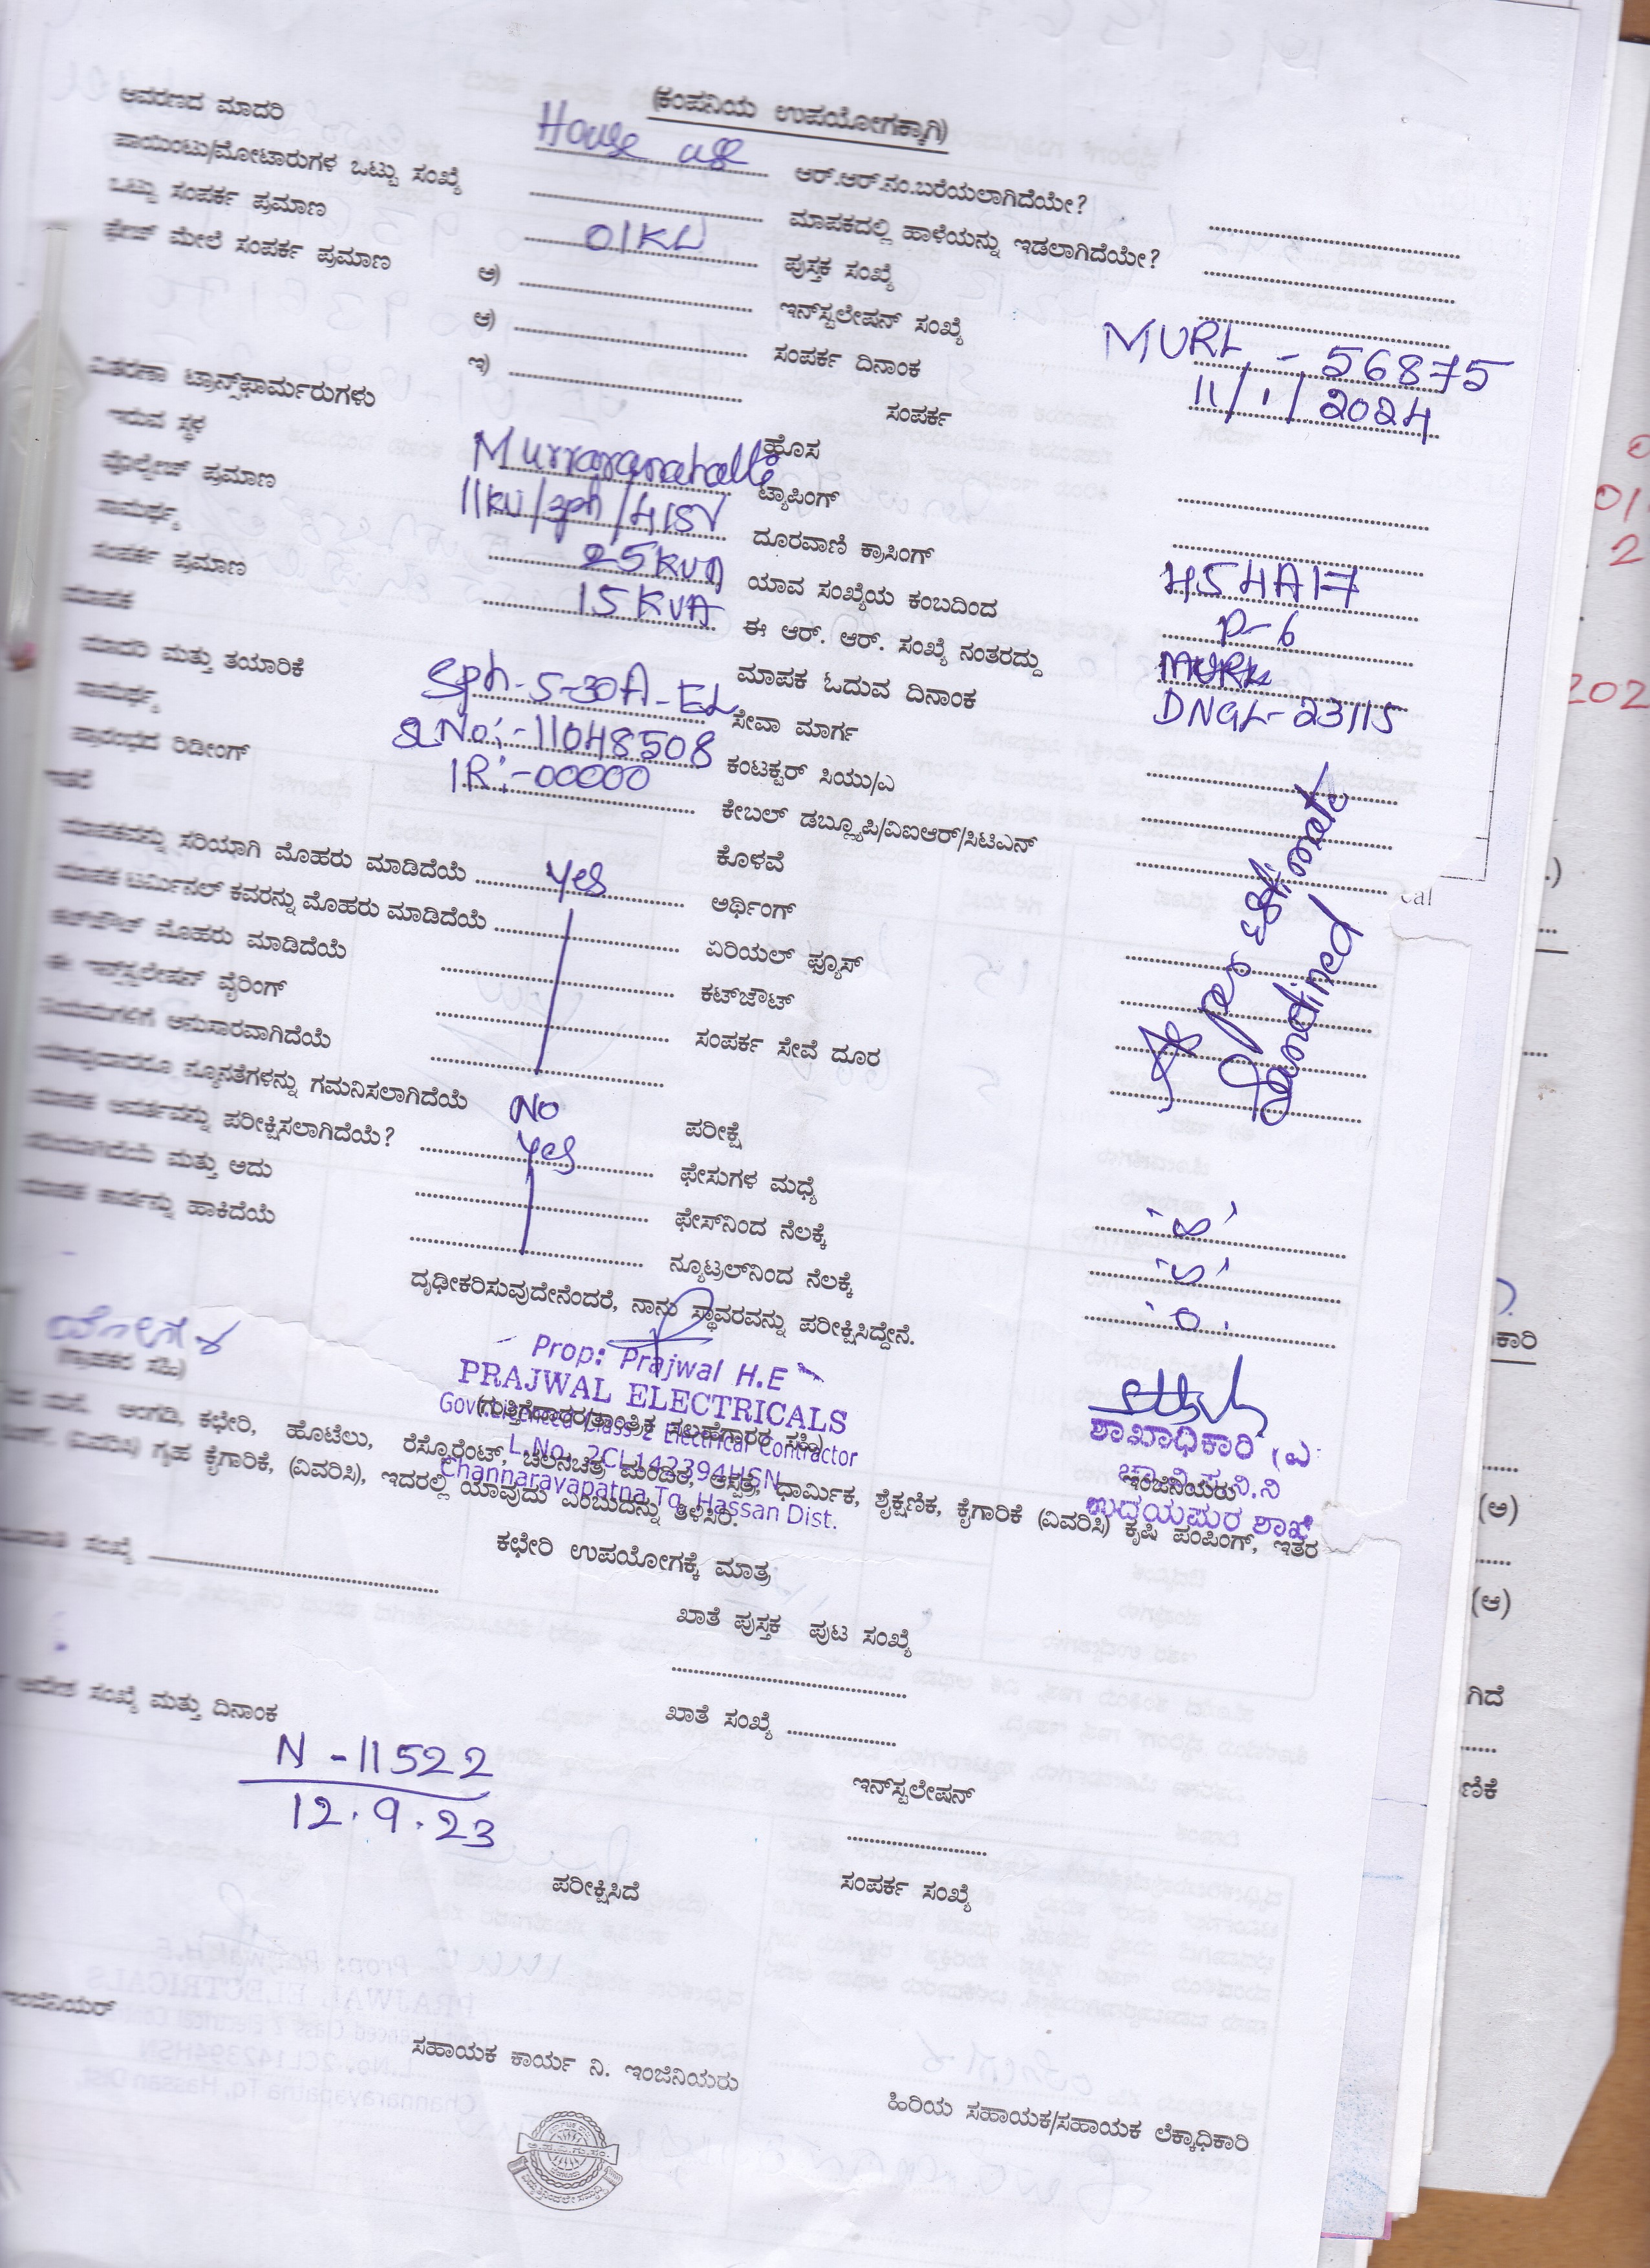 (ಕಂಪನಿಯ ಉಪಯೋಗಕ್ಕಾಗಿ)
ಆವರಣದ ಮಾದರಿ House use ಆರ್.ಆರ್.ನಂ.ಬರೆಯಲಾಗಿದೆಯೇ?
ಪಾಯಿಂಟು/ಮೋಟಾರುಗಳ ಒಟ್ಟು ಸಂಖ್ಯೆ ಮಾಪಕದಲ್ಲಿ ಹಾಳೆಯನ್ನು ಇಡಲಾಗಿದೆಯೇ?
ಒಟ್ಟು ಸಂಪರ್ಕ ಪ್ರಮಾಣ 01KW ಪುಸ್ತಕ ಸಂಖ್ಯೆ
ಫೇಜ್ ಮೇಲೆ ಸಂಪರ್ಕ ಪ್ರಮಾಣ ಅ) ಇನ್‌ಸ್ಟಲೇಷನ್ ಸಂಖ್ಯೆ MURL - 56875
ಆ) ಸಂಪರ್ಕ ದಿನಾಂಕ 11/1/2024
ಇ) ಸಂಪರ್ಕ
ವಿತರಣಾ ಟ್ರಾನ್ಸ್‌ಫಾರ್ಮರುಗಳು ಹೊಸ
ಇರುವ ಸ್ಥಳ ಟ್ಯಾಪಿಂಗ್
ವೋಲ್ಟೇಜ್ ಪ್ರಮಾಣ 11KV/3ph/415V ದೂರವಾಣಿ ಕ್ರಾಸಿಂಗ್
ಸಾಮರ್ಥ್ಯ 25KVA ಯಾವ ಸಂಖ್ಯೆಯ ಕಂಬದಿಂದ 454A17
ಸಂಪರ್ಕ ಪ್ರಮಾಣ 15KVA ಈ ಆರ್. ಆರ್. ಸಂಖ್ಯೆ ನಂತರದ್ದು P-6
ಮಾಪಕ ಮಾಪಕ ಓದುವ ದಿನಾಂಕ DNGL-23115
ಮಾದರಿ ಮತ್ತು ತಯಾರಿಕೆ Sph-5-30A-EL ಸೇವಾ ಮಾರ್ಗ
ಸಾಮರ್ಥ್ಯ S.No:-11048508 ಕಂಟಕ್ಟರ್ ಸಿಯು/ಎ
ಪ್ರಾರಂಭದ ರಿಡೀಂಗ್ IR:-00000 ಕೇಬಲ್ ಡಬ್ಲ್ಯೂಪಿ/ವಿಐಆರ್/ಸಿಟಿಎಸ್
ಇತರೆ ಕೊಳವೆ
As per estimate
Sanctioned
ಮಾಪಕವನ್ನು ಸರಿಯಾಗಿ ಮೊಹರು ಮಾಡಿದೆಯೆ Yes ಅರ್ಥಿಂಗ್
ಮಾಪಕ ಟರ್ಮಿನಲ್ ಕವರನ್ನು ಮೊಹರು ಮಾಡಿದೆಯೆ ಏರಿಯಲ್ ಫ್ಯೂಸ್
ಕಟ್‌ಔಟ್ ಮೊಹರು ಮಾಡಿದೆಯೆ ಕಟ್‌ಔಟ್
ಈ ಇನ್‌ಸ್ಟಲೇಷನ್ ವೈರಿಂಗ್ ಸಂಪರ್ಕ ಸೇವೆ ದೂರ
ನಿಯಮಗಳಿಗೆ ಅನುಸಾರವಾಗಿದೆಯೆ
ಯಾವುದಾದರೂ ನ್ಯೂನತೆಗಳನ್ನು ಗಮನಿಸಲಾಗಿದೆಯೆ No ಪರೀಕ್ಷೆ
ಮಾಪಕ ಆವರ್ತವನ್ನು ಪರೀಕ್ಷಿಸಲಾಗಿದೆಯೆ? Yes ಫೇಸುಗಳ ಮಧ್ಯೆ
ಸರಿಯಾಗಿದೆಯೆ ಮತ್ತು ಅದು ಫೇಸ್‌ನಿಂದ ನೆಲಕ್ಕೆ
ಮಾಪಕ ಕಾರ್ಡನ್ನು ಹಾಕಿದೆಯೆ ನ್ಯೂಟ್ರಲ್‌ನಿಂದ ನೆಲಕ್ಕೆ
ದೃಢೀಕರಿಸುವುದೇನೆಂದರೆ, ನಾನು ಸ್ಥಾವರವನ್ನು ಪರೀಕ್ಷಿಸಿದ್ದೇನೆ.
(ಗ್ರಾಹಕರ ಸಹಿ)
Prop: Prajwal H.E
PRAJWAL ELECTRICALS
Govt. Licenced Class 2 Electrical Contractor
L.No. 2CL142394HSN
Channarayapatna Tq, Hassan Dist.
(ಗುತ್ತಿಗೆದಾರರ/ತಾಂತ್ರಿಕ ಸಲಹೆಗಾರರ ಸಹಿ)
ಶಾಖಾಧಿಕಾರಿ (ಎ
ಇಂಜಿನಿಯರು
ಉದಯಪುರ ಶಾಖೆ
ಮನೆ, ಅಂಗಡಿ, ಕಛೇರಿ, ಹೊಟೆಲು, ರೆಸ್ಟೋರೆಂಟ್, ಚಲನಚಿತ್ರ ಮಂದಿರ, ಆಸ್ಪತ್ರೆ, ಧಾರ್ಮಿಕ, ಶೈಕ್ಷಣಿಕ, ಕೈಗಾರಿಕೆ (ವಿವರಿಸಿ) ಕೃಷಿ ಪಂಪಿಂಗ್, ಇತರ
(ವಿವರಿಸಿ) ಗೃಹ ಕೈಗಾರಿಕೆ, (ವಿವರಿಸಿ), ಇದರಲ್ಲಿ ಯಾವುದು ಎಂಬುದನ್ನು ತಿಳಿಸಿರಿ.
ಕಛೇರಿ ಉಪಯೋಗಕ್ಕೆ ಮಾತ್ರ
ಸಂಖ್ಯೆ
ಖಾತೆ ಪುಸ್ತಕ ಪುಟ ಸಂಖ್ಯೆ
ಆದೇಶ ಸಂಖ್ಯೆ ಮತ್ತು ದಿನಾಂಕ ಖಾತೆ ಸಂಖ್ಯೆ
N - 11522
12.9.23
ಇನ್‌ಸ್ಟಲೇಷನ್
ಪರೀಕ್ಷಿಸಿದೆ ಸಂಪರ್ಕ ಸಂಖ್ಯೆ
ಇಂಜಿನಿಯರ್
ಸಹಾಯಕ ಕಾರ್ಯ ನಿ. ಇಂಜಿನಿಯರು
ಹಿರಿಯ ಸಹಾಯಕ/ಸಹಾಯಕ ಲೆಕ್ಕಾಧಿಕಾರಿ